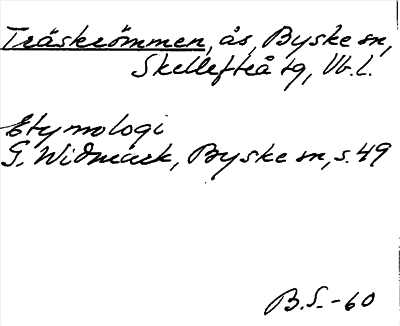 Träskrömmen, ås, Byske sn,
Skellefteå tg, Vb. l.
Etymologi
G. Widmark, Byske sn, s. 49
B.S. -60